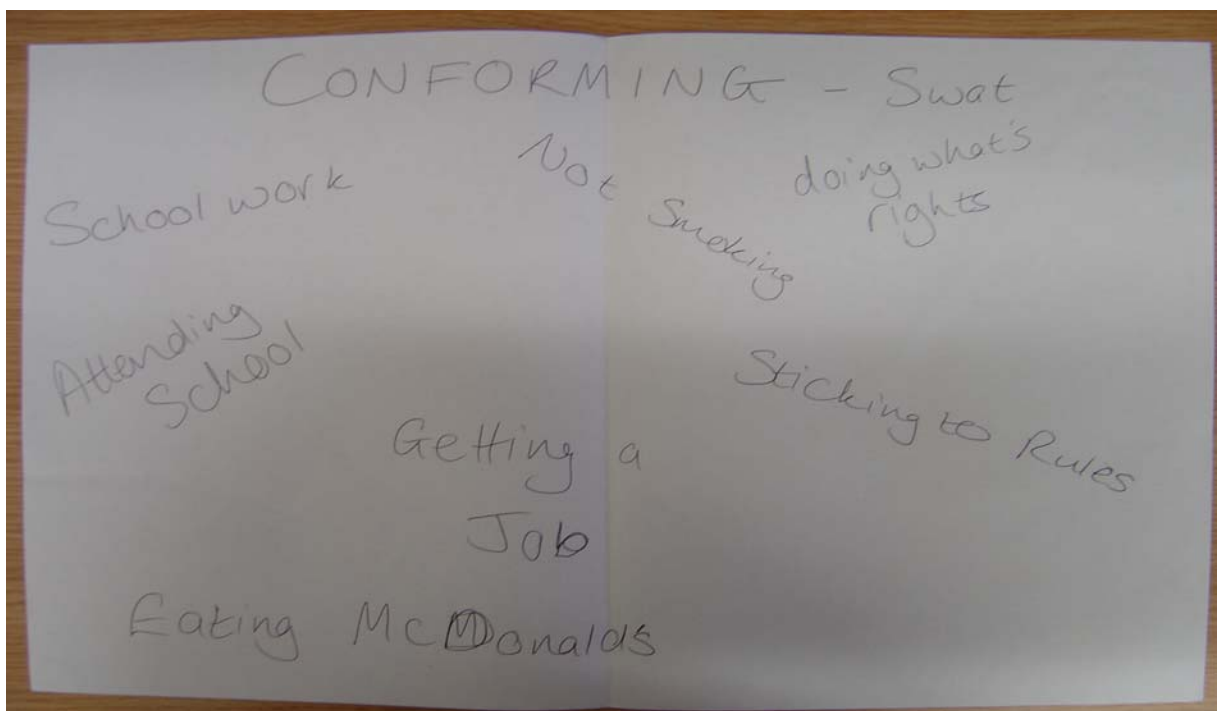 CONFORMING - Swat
Not Smoking
doing what's
rights
School work
Attending
School
Sticking to Rules
Getting a
Job
Eating McDonalds